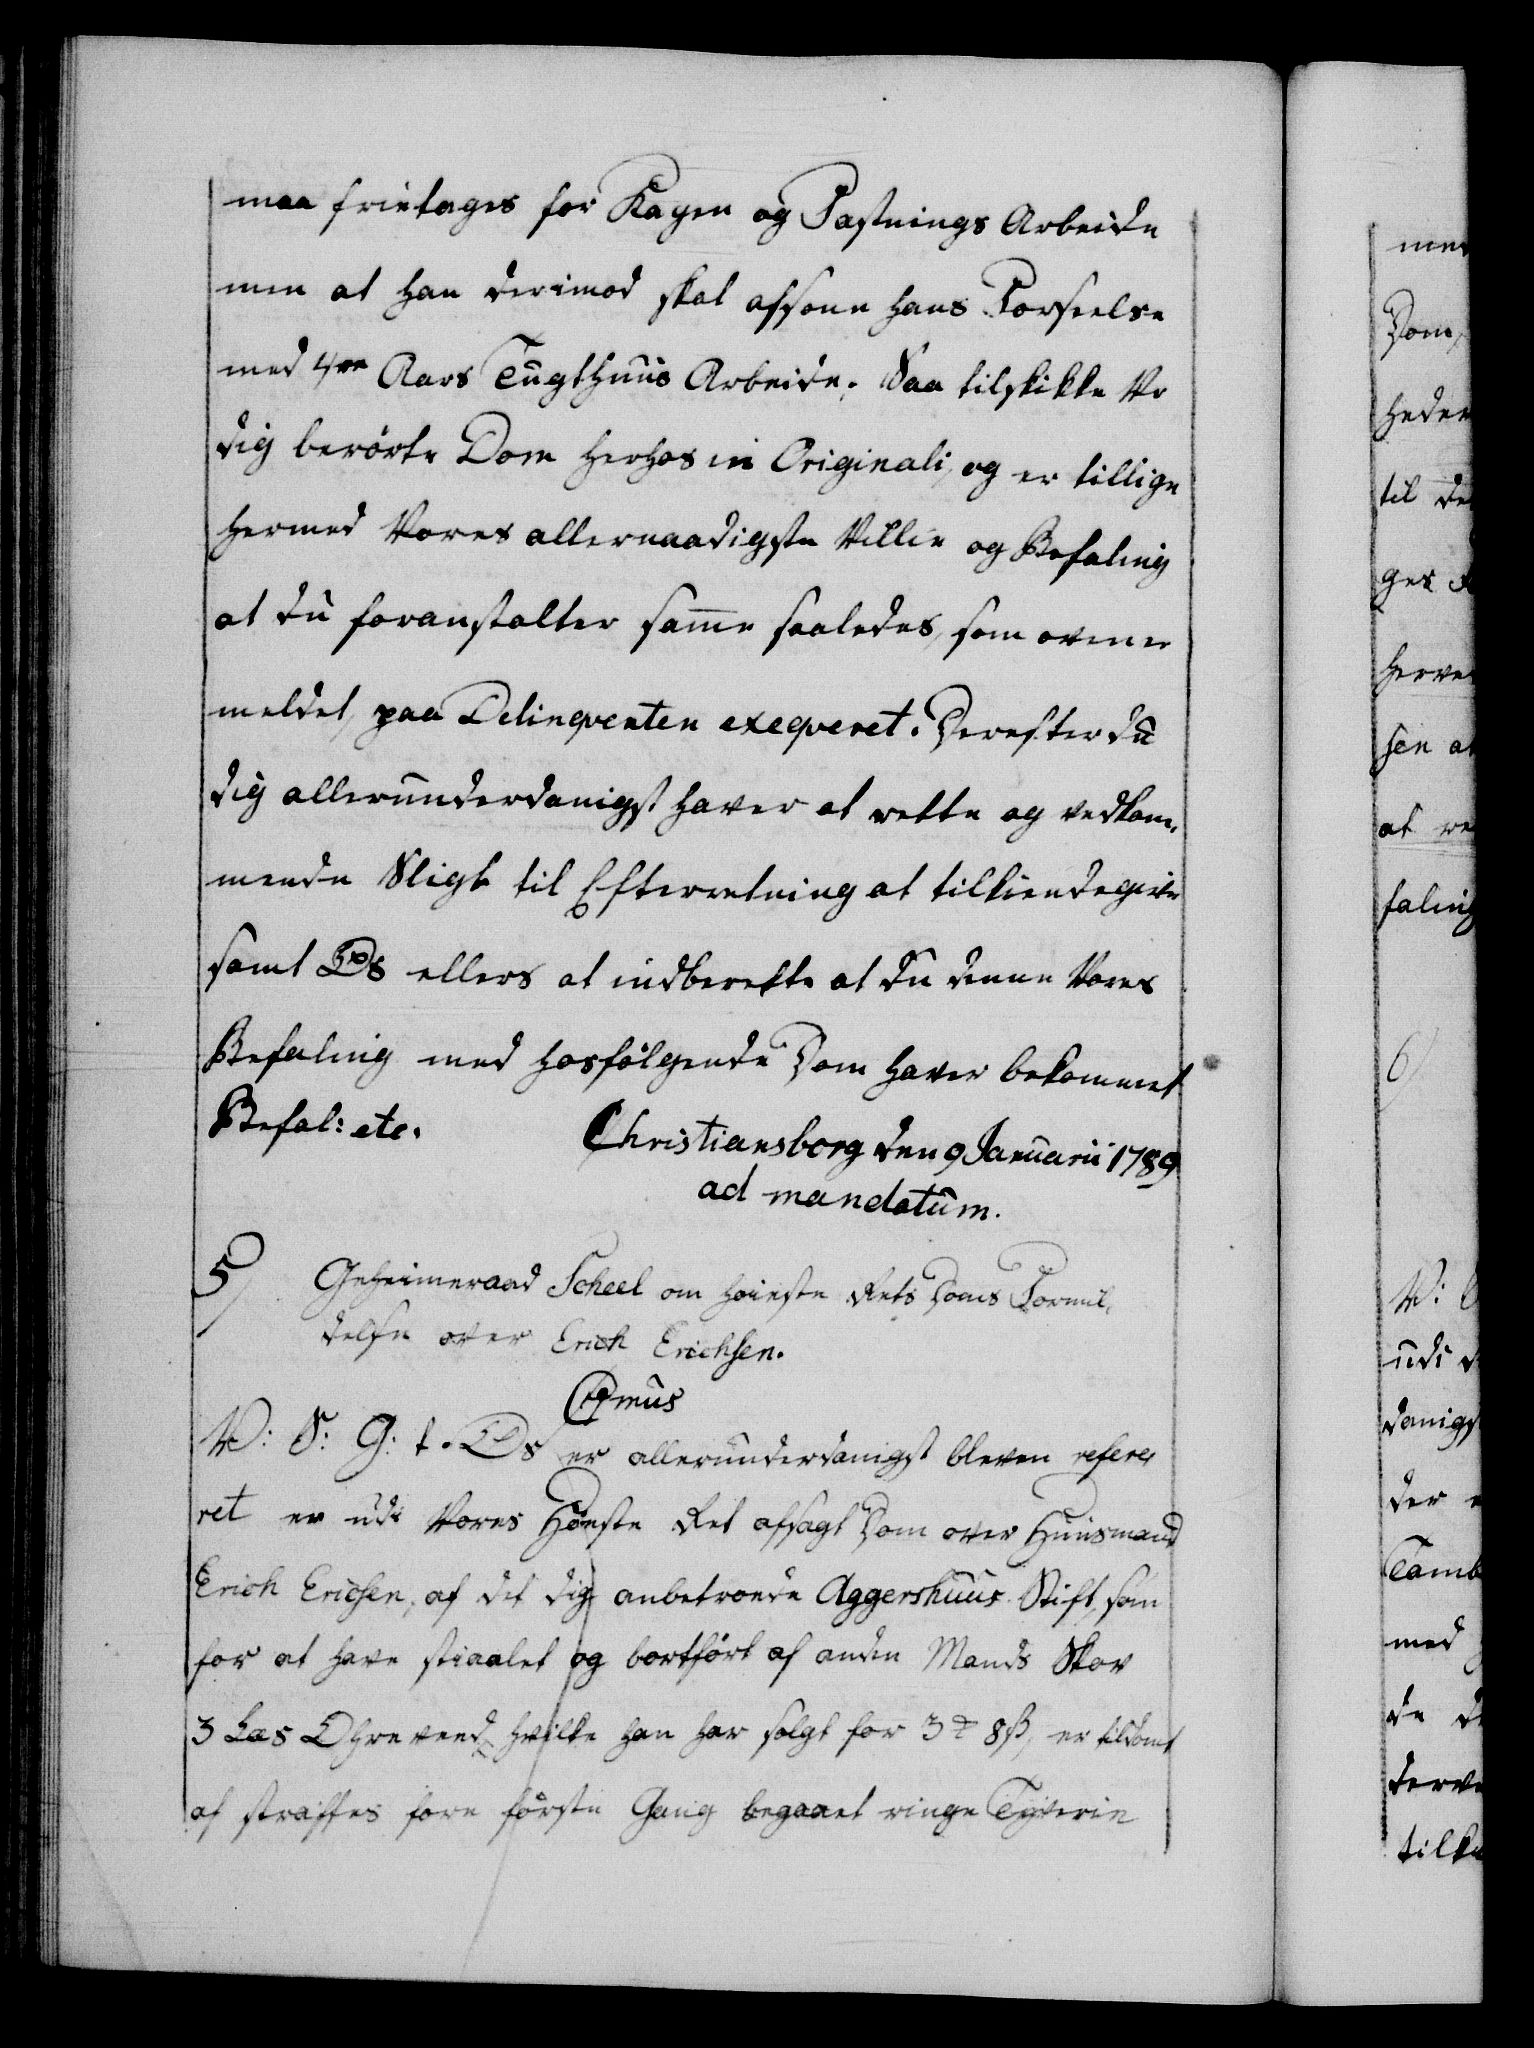 maa frietages for Kagen og Fæstnings Arbeide
men at han derimod skal afsone hans Forseelse
med 4re Aars Tugthuus Arbeide. Saa tilskikke Vi
dig berörte Dom herhos in Originali, og er tillige
hermed Vores allernaadigste Villie og Befaling
at du foranstalter samme saaledes, som oven er
meldet, paa Delinqventen exeqveret. Derefter du
dig allerunderdanigst haver at rette og vedkom¬
mende Sligt til Efterretning at tilkiendegive
samt Os ellers at indberette at du denne Vores
Befaling med hosfölgende Dom haver bekommet
Befal: etc. Christiansborg den 9 Januarii 1789
ad mandatum.
5) Geheimeraad Scheel om høieste Rets Doms Formil¬
delse over Erich Erichsen.
V: S: G: t. Os er allerunderdanigst bleven refere¬
ret er udi Vores Höieste Ret afsagt Dom over Huusmand
Erich Erichsen, af det dig anbetroede Aggershuus Stift, som
for at have stiaalet og bortført af anden Mands Skov
3 Læs Ohreveed, hvilke han har solgt for 3 8 ß, er tildømt
at straffes for første Gang begaaet ringe Tyverie